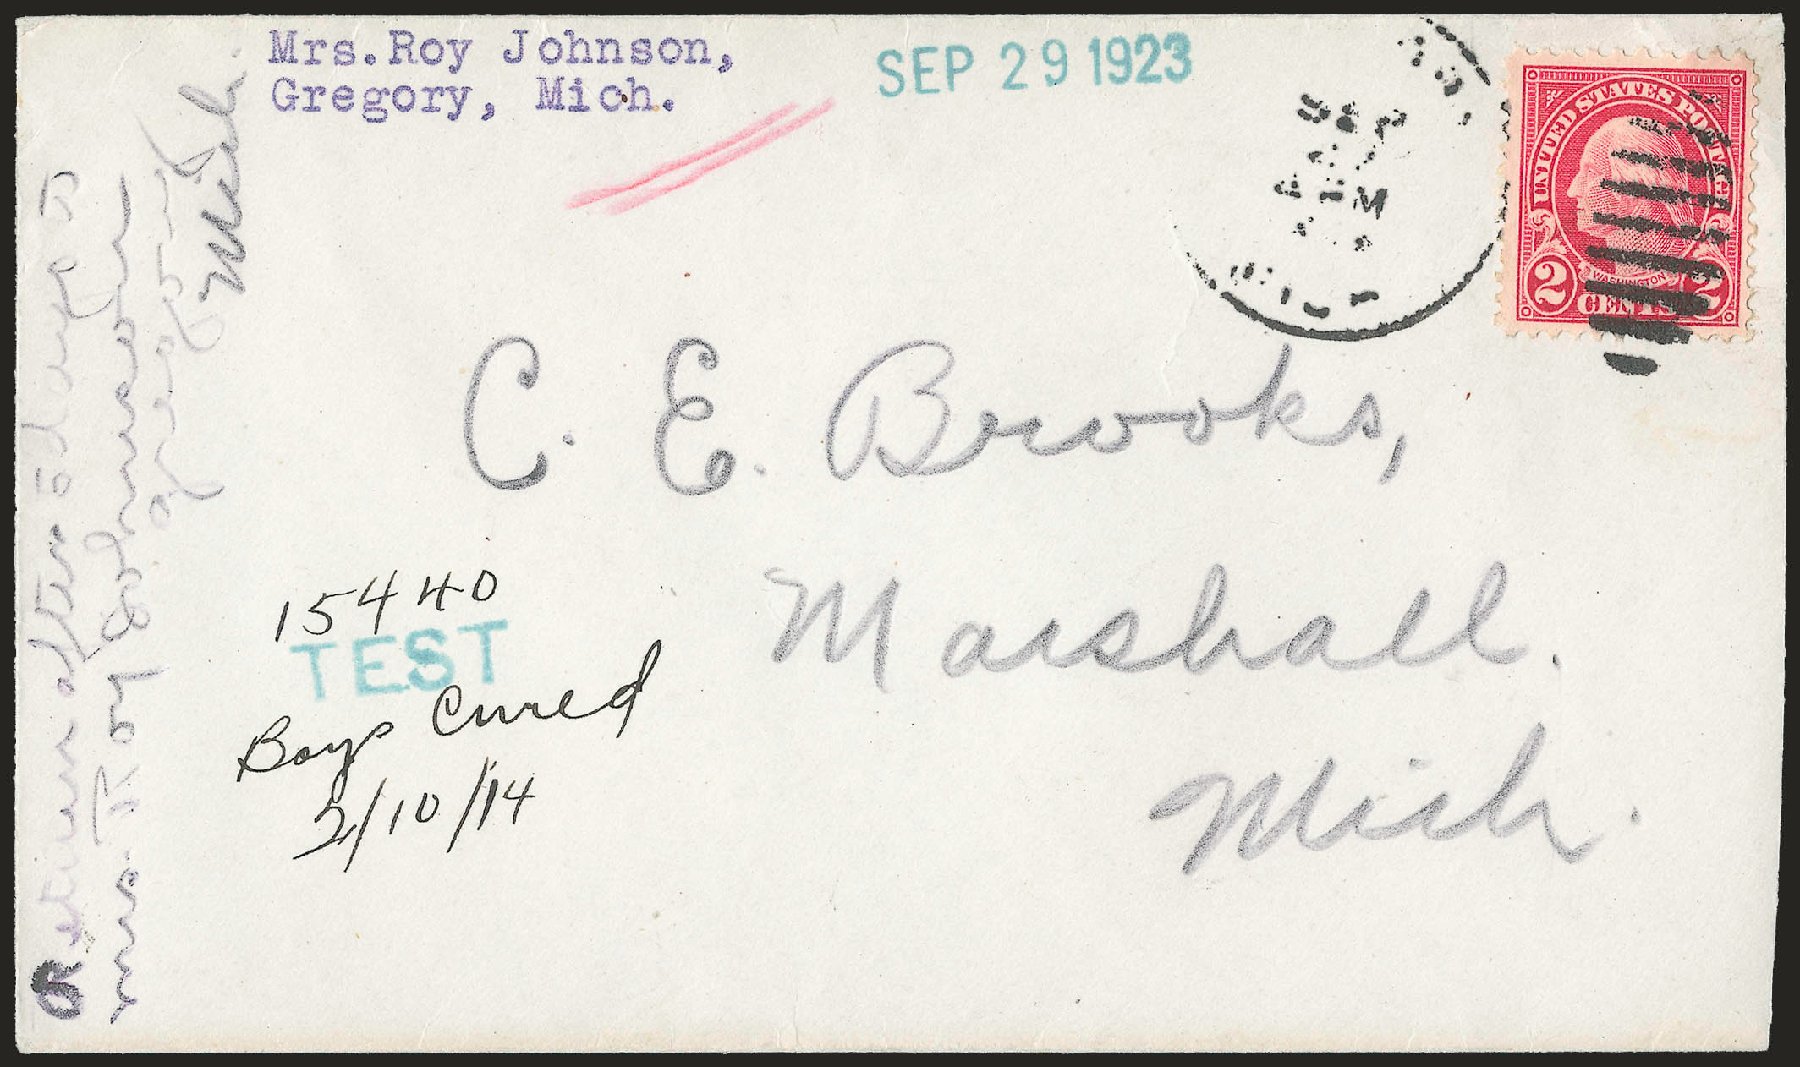 Mrs. Roy Johnson,
Gregory, Mich.
SEP 29 1923
SEP 2
AM
MICH
UNITED STATES POSTAGE
WASHINGTON
2 CENTS 2
C. E. Brooks,
Marshall.
Mich.
15440
TEST
Boys Cured
2/10/14
Return after 5 days to
Mrs. Roy Johnson
Gregory
Mich.